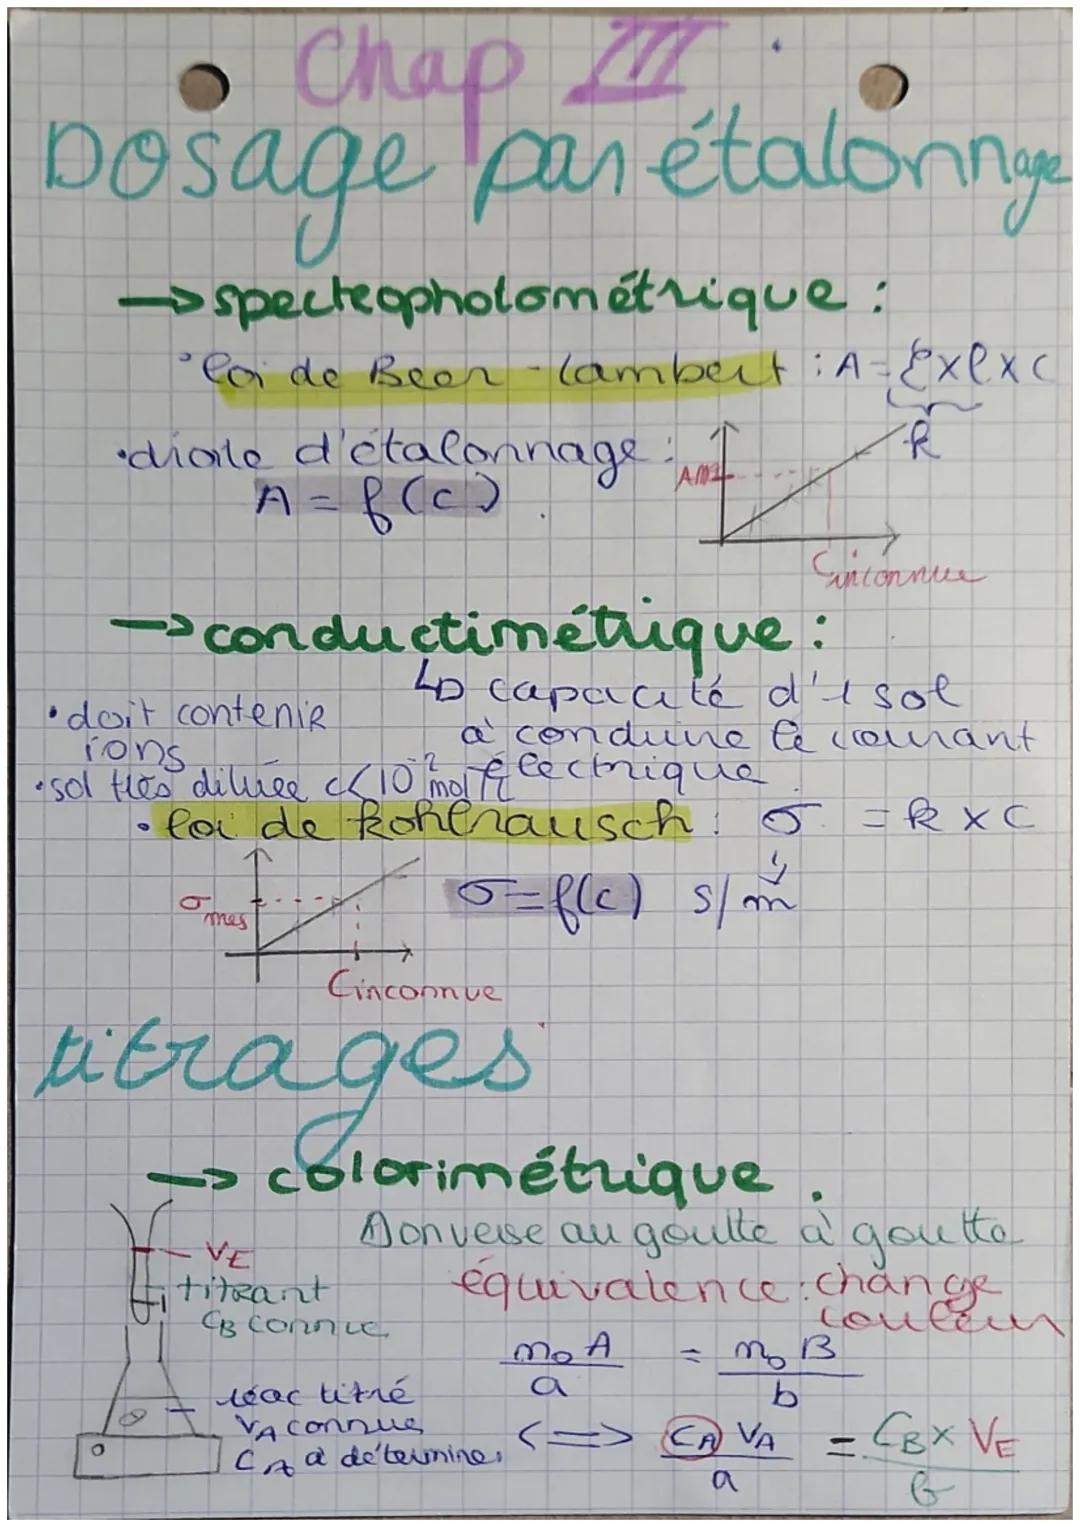 Chap III
Dosage par étalonnage
→ spectrophotométrique :
• loi de Beer-Lambert : A = ε x l x c
k
• droite d'étalonnage :
A = f(c)
Ames
Cinconnue
→ conductimétrique :
↳ capacité d'1 sol
à conduire le courant
électrique
• doit contenir
ions
• sol très diluée c<10⁻² mol/L
• loi de Kohlrausch : σ = k x c
σ = f(c) S/m
σmes
Cinconnue
titrages
→ colorimétrique :
On verse au goutte à goutte
équivalence : change
couleur
VE
titrant
CB connue
réac titré
VA connue
CA à déterminer
n₀A/a = n₀B/b
<=> CA VA/a = CB x VE/b